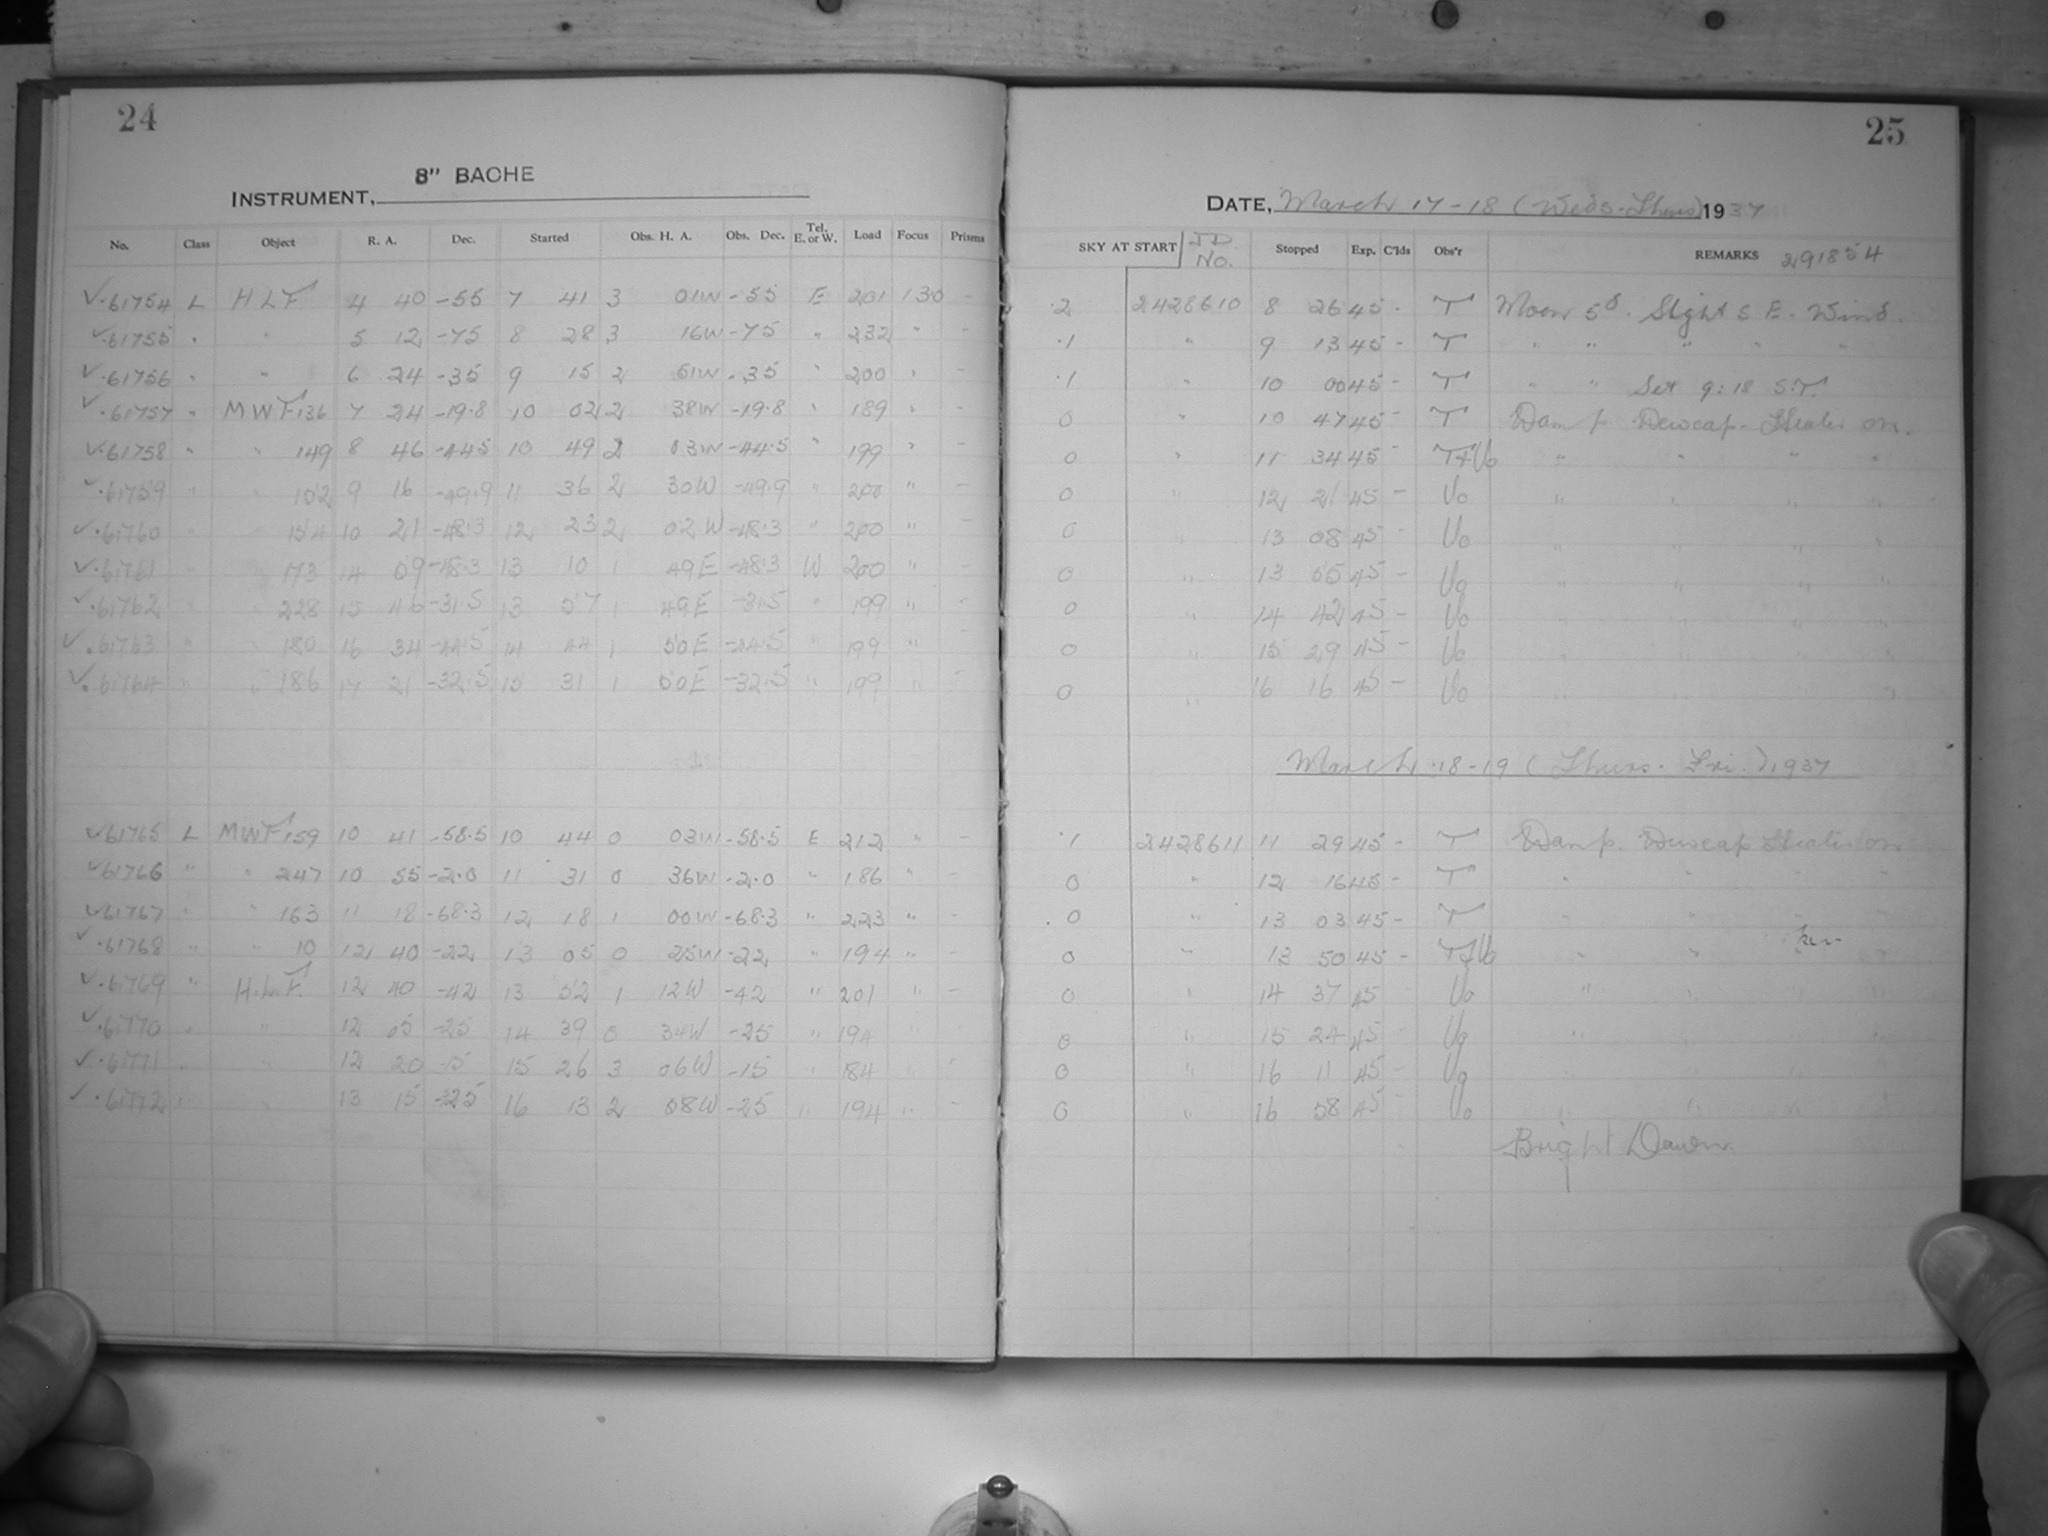 24
8" BACHE
INSTRUMENT,
No. Class Object R. A. Dec. Started Obs. H. A. Obs. Dec. Tel. E. or W. Load Focus Prisms
✓.61754 L H L F. 4 40 -55 7 41 3 01W -55 E 201 130 -
✓.61755 " " 5 12 -75 8 28 3 16W -75 " 232 " -
✓.61756 " " 6 24 -35 9 15 2 51W -35 " 200 " -
✓.61757 " M W F 136 7 24 -19.8 10 02 2 38W -19.8 " 189 " -
✓.61758 " " 149 8 46 -44.5 10 49 2 03W -44.5 " 199 " -
✓.61759 " " 152 9 16 -49.9 11 36 2 30W -49.9 " 200 " -
✓.61760 " " 154 10 21 -48.3 12 23 2 02W -48.3 " 200 " -
✓.61761 " " 173 14 09 -48.3 13 10 1 49E -48.3 W 200 " -
✓.61762 " " 228 15 46 -31.5 13 57 1 49E -31.5 " 199 " -
✓.61763 " " 180 16 34 -44.5 14 44 1 50E -44.5 " 199 " -
✓.61764 " " 186 17 21 -32.5 15 31 1 50E -32.5 " 199 " -
✓61765 L MWF 159 10 41 -58.5 10 44 0 03W -58.5 E 212 " -
✓61766 " " 247 10 55 -2.0 11 31 0 36W -2.0 " 186 " -
✓61767 " " 163 11 18 -68.3 12 18 1 00W -68.3 " 223 " -
✓.61768 " " 10 12 40 -22 13 05 0 25W -22 " 194 " -
✓.61769 " H.L.F. 12 40 -42 13 52 1 12W -42 " 201 " -
✓.61770 " " 12 05 -25 14 39 34W -25 " 194 " -
✓.61771 " " 12 20 -15 15 26 3 06W -15 " 184 " -
✓.61772 " " 13 15 -25 16 13 2 08W -25 " 194 " -
25
DATE, March 17-18 (Weds-Thurs) 1937
SKY AT START J D No. Stopped Exp. C'lds Obs'r REMARKS 291854
.2 2428610 8 26 45 - T Moon 5d. Slight S E. Wind.
.1 " 9 13 45 - T " " " " "
.1 " 10 00 45 - T " " Set 9:18 S.T.
0 " 10 47 45 - T Damp. Dewcap-Heater on.
0 " 11 34 45 - T+Uo " " " "
0 " 12 21 45 - Uo " " " "
0 " 13 08 45 - Uo " " " "
0 " 13 55 45 - Uo " " " "
0 " 14 42 45 - Uo " " " "
0 " 15 29 45 - Uo " " " "
0 " 16 16 45 - Uo " " " "
March 18-19 (Thurs. Fri.) 1937
.1 2428611 11 29 45 - T Damp. Dewcap Heater on
0 " 12 16 45 - T " " " "
0 " 13 03 45 - T " " " "
0 " 13 50 45 - T+Uo " " "
0 " 14 37 45 Uo " " " "
0 " 15 24 45 - Uo " " " "
0 " 16 11 45 - Uo " " " "
0 " 16 58 45 - Uo " " " "
Bright Dawn.